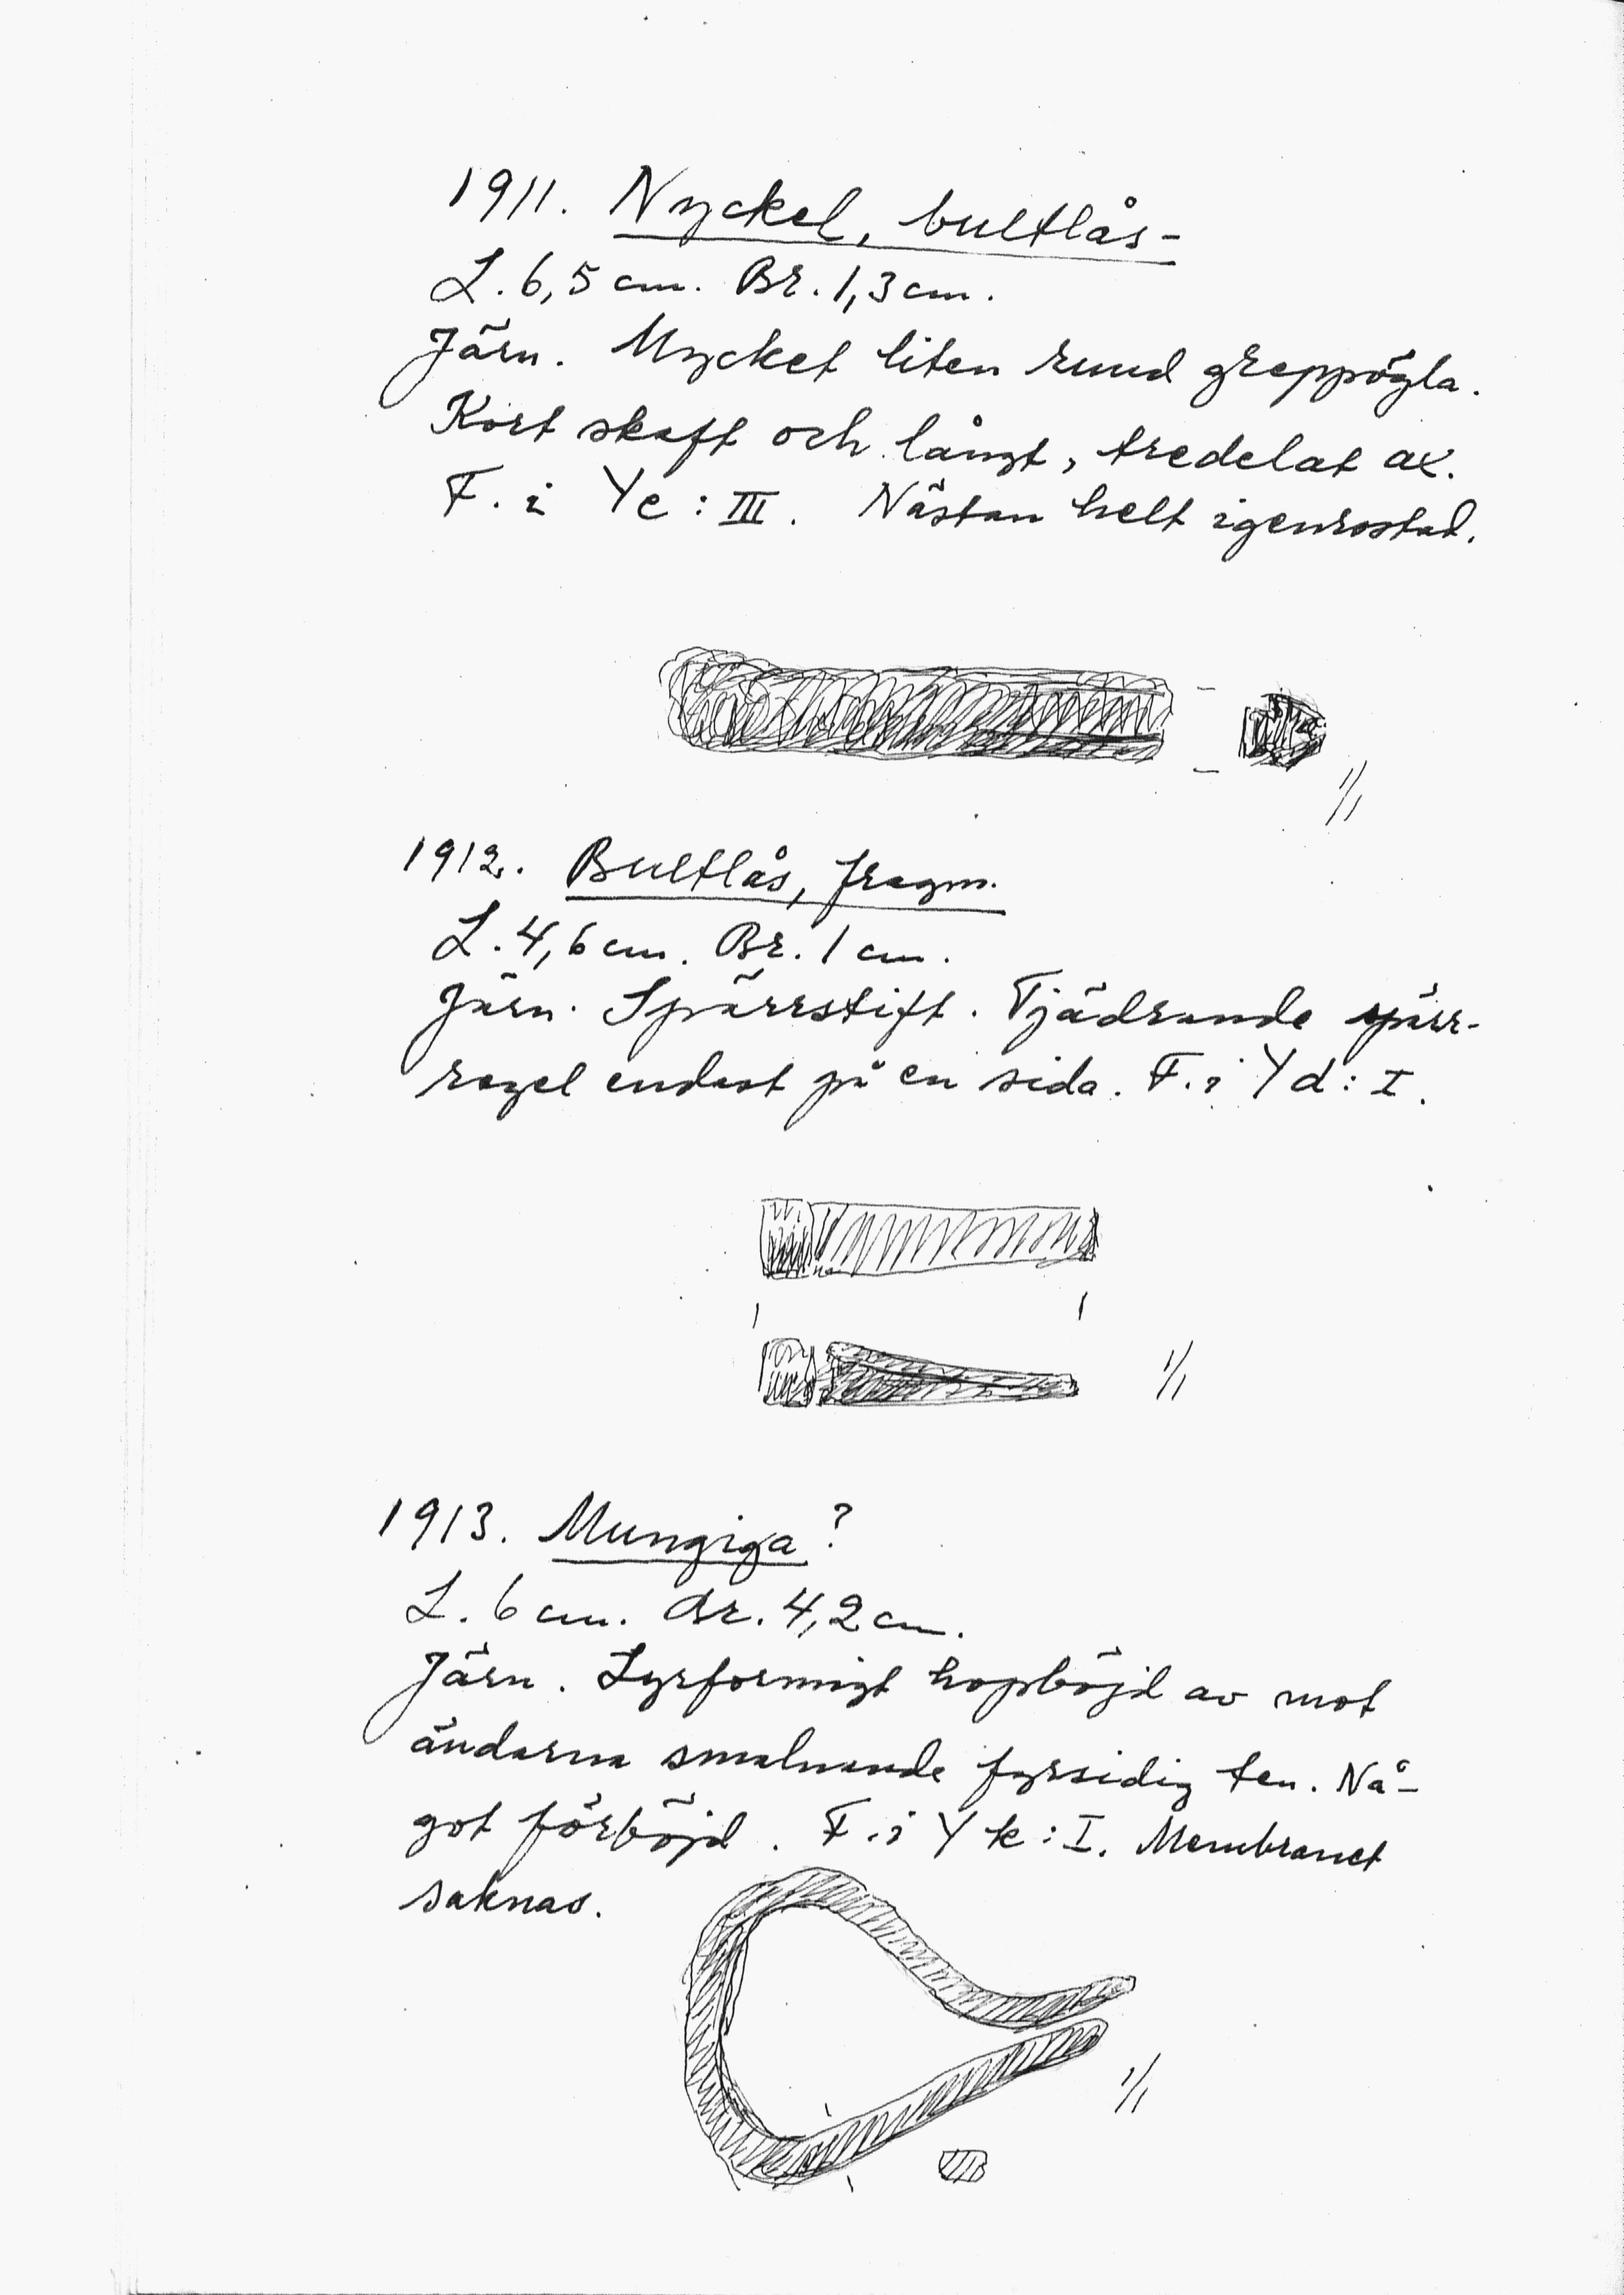 1911. Nyckel, bultlås-
L. 6,5 cm. Br. 1,3 cm.
Järn. Mycket liten rund greppögla.
Kort skaft och långt, tredelat ax.
F. i Ye : III. Nästan helt igenrostad.
1/1
1912. Bultlås, fragm.
L. 4,6 cm. Br. 1 cm.
Järn. Spärrstift. Fjädrande spärr-
regel endast på en sida. F. i Yd : I.
1/1
1913. Mungiga ?
L. 6 cm. Br. 4,2 cm.
Järn. Lyrformigt hopböjd av mot
ändarna smalnande fyrsidig ten. Nå-
got förböjd. F. i Yk : I. Membranet
saknas.
1/1